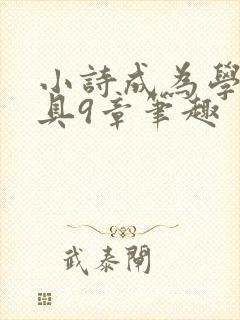 小詩成為學
具9章筆趣
武泰閘